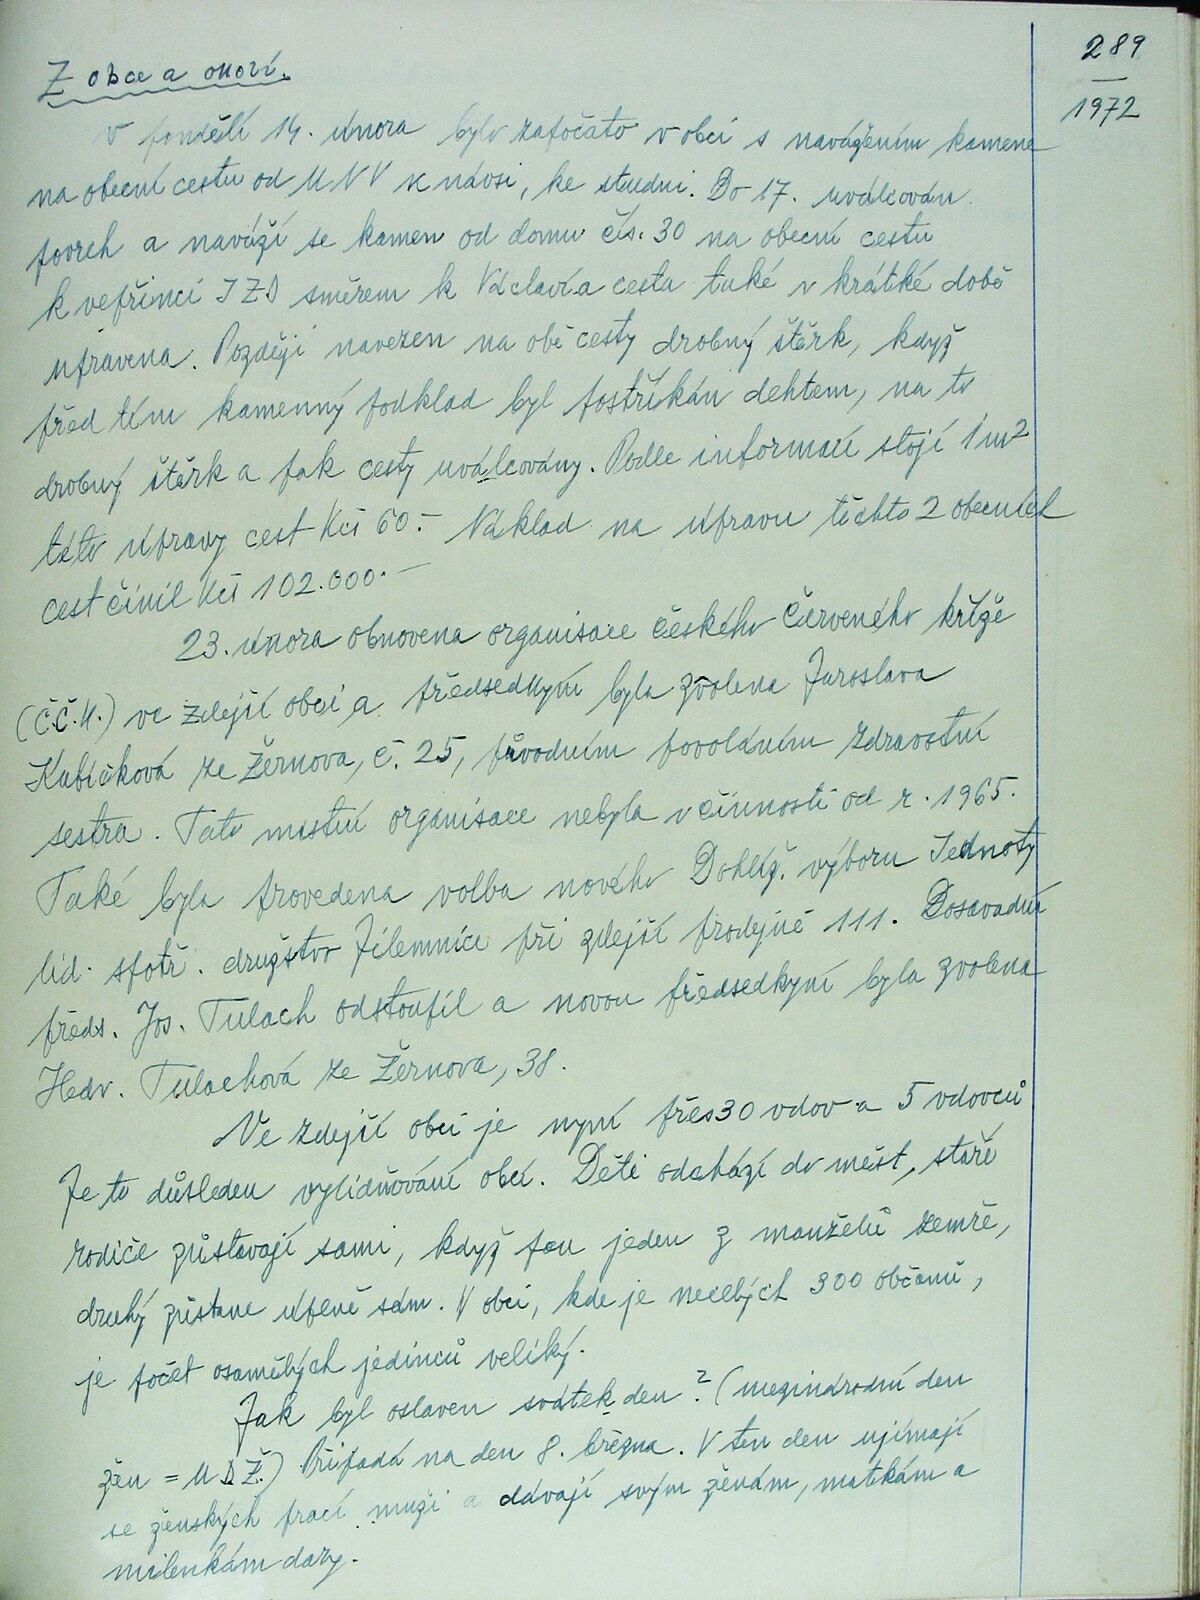 289
1972
Z obce a okolí.
V pondělí 14. února bylo započato v obci s navážením kamene
na obecní cestu od MNV k návsi, ke studni. Do 17. uválcován
povrch a naváží se kamen od domu čís. 30 na obecní cestu
k vepřinci JZD směrem k Václaví a cesta také v krátké době
upravena. Později navezen na obě cesty drobný štěrk, když
před tím kamenný podklad byl postříkán dehtem, na to
drobný štěrk a pak cesty uválcovány. Podle informací stojí 1 m2
této úpravy cest Kčs 60.- Náklad na úpravu těchto 2 obecních
cest činil Kčs 102.000.-
23. února obnovena organisace českého Červeného kříže
(Č.Č.K.) ve zdejší obci a předsedkyní byla zvolena Jaroslava
Kubíčková ze Žernova, č. 25, původním povoláním zdravotní
sestra. Tato místní organisace nebyla v činnosti od r. 1965.
Také byla provedena volba nového Dohlíž. výboru Jednoty
lid. spotř. družstvo Jilemnice při zdejší prodejně 111. Dosavadní
předs. Jos. Tulach odstoupil a novou předsedkyní byla zvolena
Hedv. Tulachová ze Žernova, 38.
Ve zdejší obci je nyní přes 30 vdov a 5 vdovců
Je to důsledek vylidňování obcí. Děti odchází do měst, staří
rodiče zůstavají sami, když pak jeden z manželů zemře,
druhý zůstane úplně sám. V obci, kde je necelých 300 občanů,
je počet osamělých jedinců veliký.
Jak byl oslaven svátek den? (mezinárodní den
žen = MDŽ.) Připadá na den 8. března. V ten den ujímají
se ženských prací muži a dávají svým ženám, matkám a
milenkám dary.